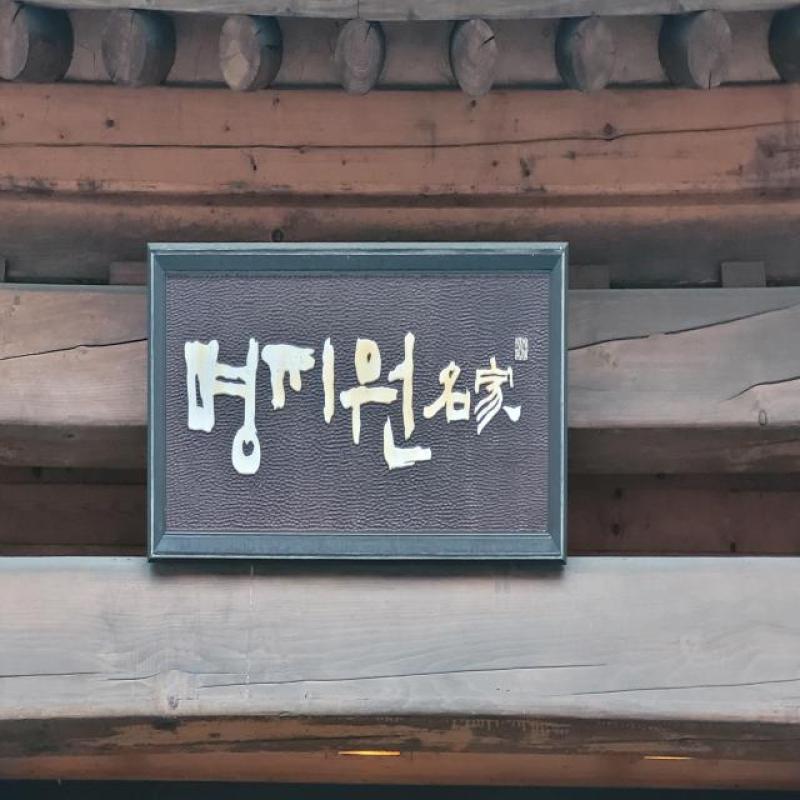 명지원 名家